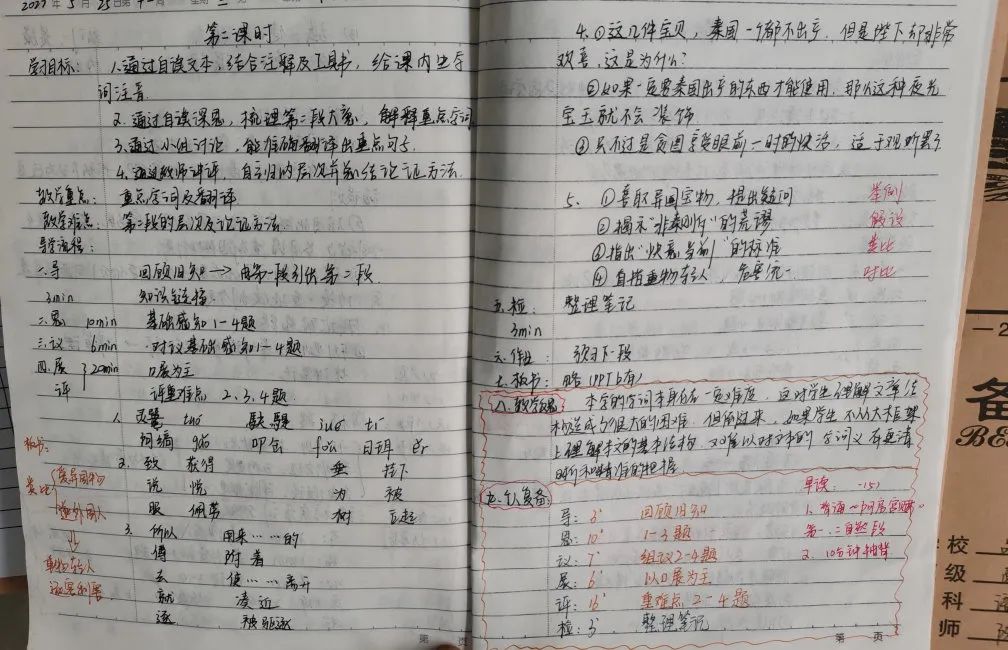 2023年5月25日第十一周 星期三
第二课时
学习目标: 1.通过自读文本,结合注释及工具书,给课内生字
词注音.
2.通过自读课思,梳理第二段大意,解释重点字词
3.通过小组讨论,能准确翻译出重点句子.
4.通过教师讲评,自主归纳层次并总结论证方法.
教学重点: 重点字词及翻译
教学难点: 第二段的层次及论证方法
导学流程:
一.导 回顾旧知→由第一段引出第二段
3min 知识链接
二.思 10min 基础感知1-4题
三.议 6min 对议基础感知1-4题
四.展 }20min 口展为主
评 评重难点 2、3、4题
1. 灵鼍 tuó 駃騠 jué tí
阿缟 gǎo 叩缶 fǒu 珥 ěr
2. 致 获得 垂 挂下
说 悦 为 被
服 佩带 树 竖起
3. 所以 用来……的
傅 附着
去 使……离开
就 凑近
逐 被驱逐
板书:
类比
爱异国
逐外国人
↓
重物轻人
逐客利害
4.①这几件宝贝,秦国一个都不出产,但是陛下却非常
欢喜,这是为什么?
②如果一定要秦国出产的东西才能使用,那么这种夜光
宝玉就不会装饰
③只不过是贪图享受眼前一时的快活,适于观听罢了
5. ①喜取异国宝物,提出疑问 举例
②揭示"非秦则斥"的荒谬 假设
③指出"快意当前"的标准 类比
④直指重物轻人,危害统一 对比
五.检: 整理笔记
3min
六.作业: 预习下一段
七.板书: 略(PPT上有)
八.教学反思: 本堂的字词本身存在一定难度,这对学生理解文章结
构造成了很大的困难.但反过来,如果学生不从大框架
上理解本文的基本结构,又难以对文本的字词义有更清
晰和准确的把握
九.个人复备:
导: 3' 回顾旧知
思: 10' 1-3题
议: 7' 组议2-4题
展: 6' 以口展为主
评: 16' 重难点2-4题
检: 3' 整理笔记
早读: -15)
1. 背诵《阿房宫赋》
第一、二自然段
2. 10分钟抽背
第 页
第 页
备
校
级
科
师